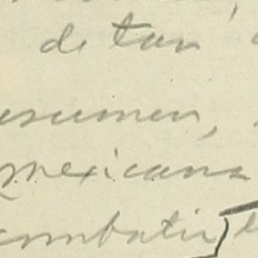 de tan
esumen,
mexicana
combatir